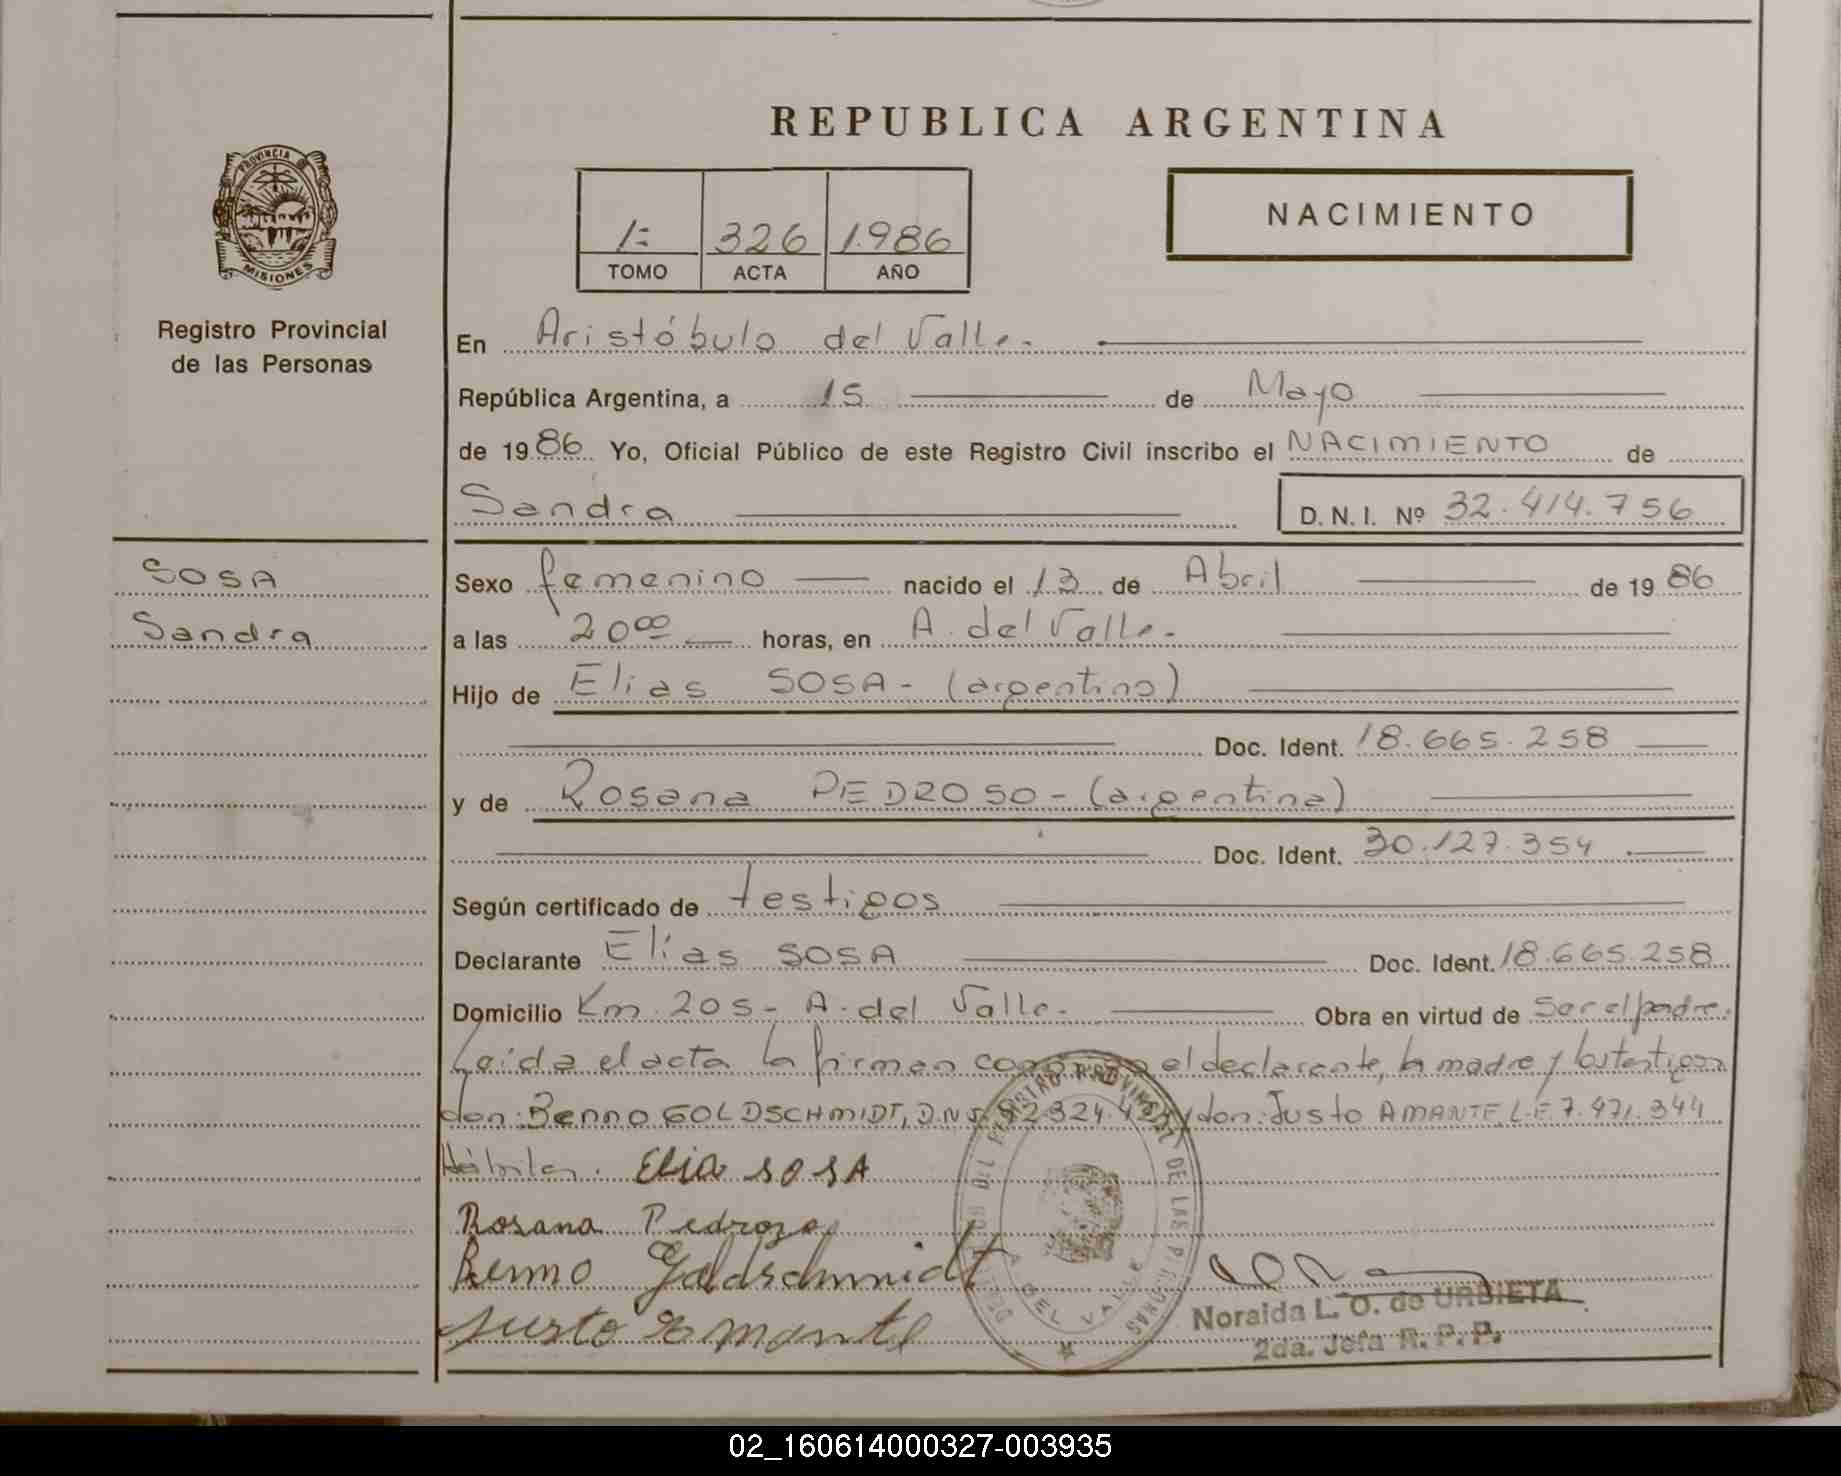 REPUBLICA ARGENTINA
PROVINCIA DE
MISIONES
Registro Provincial
de las Personas
1=
326
1.986
TOMO
ACTA
AÑO
NACIMIENTO
En Aristóbulo del Valle.
República Argentina, a 15 de Mayo
de 1986 Yo, Oficial Público de este Registro Civil inscribo el NACIMIENTO de
Sandra D. N. I. Nº 32.414.756
SOSA
Sandra
Sexo femenino nacido el 13 de Abril de 1986
a las 20 00 horas, en A. del Valle.
Hijo de Elias SOSA - (argentino)
Doc. Ident. 18.665.258
y de Rosana PEDROSO - (argentina)
Doc. Ident. 30.127.354
Según certificado de testigos
Declarante Elias SOSA Doc. Ident. 18.665.258
Domicilio Km. 205 - A. del Valle. Obra en virtud de ser el padre.
Leida el acta la firman conmigo el declarante, la madre y los testigos
don: Benno GOLDSCHMIDT, D.N.I. y don: Justo AMANTE, L.E. 7.471.344
Hábiles. Elia SOSA
Rosana Pedrozo
Benno Goldschmidt
Justo Amante
REGISTRO PROVINCIAL DE LAS PERSONAS
A. DEL VALLE
Noralda L. O. de URBIETA
2da. Jefa R. P. P.
02_160614000327-003935